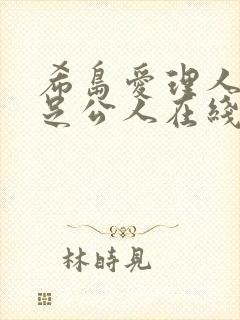 希島愛理人
足公人在綫
林時見